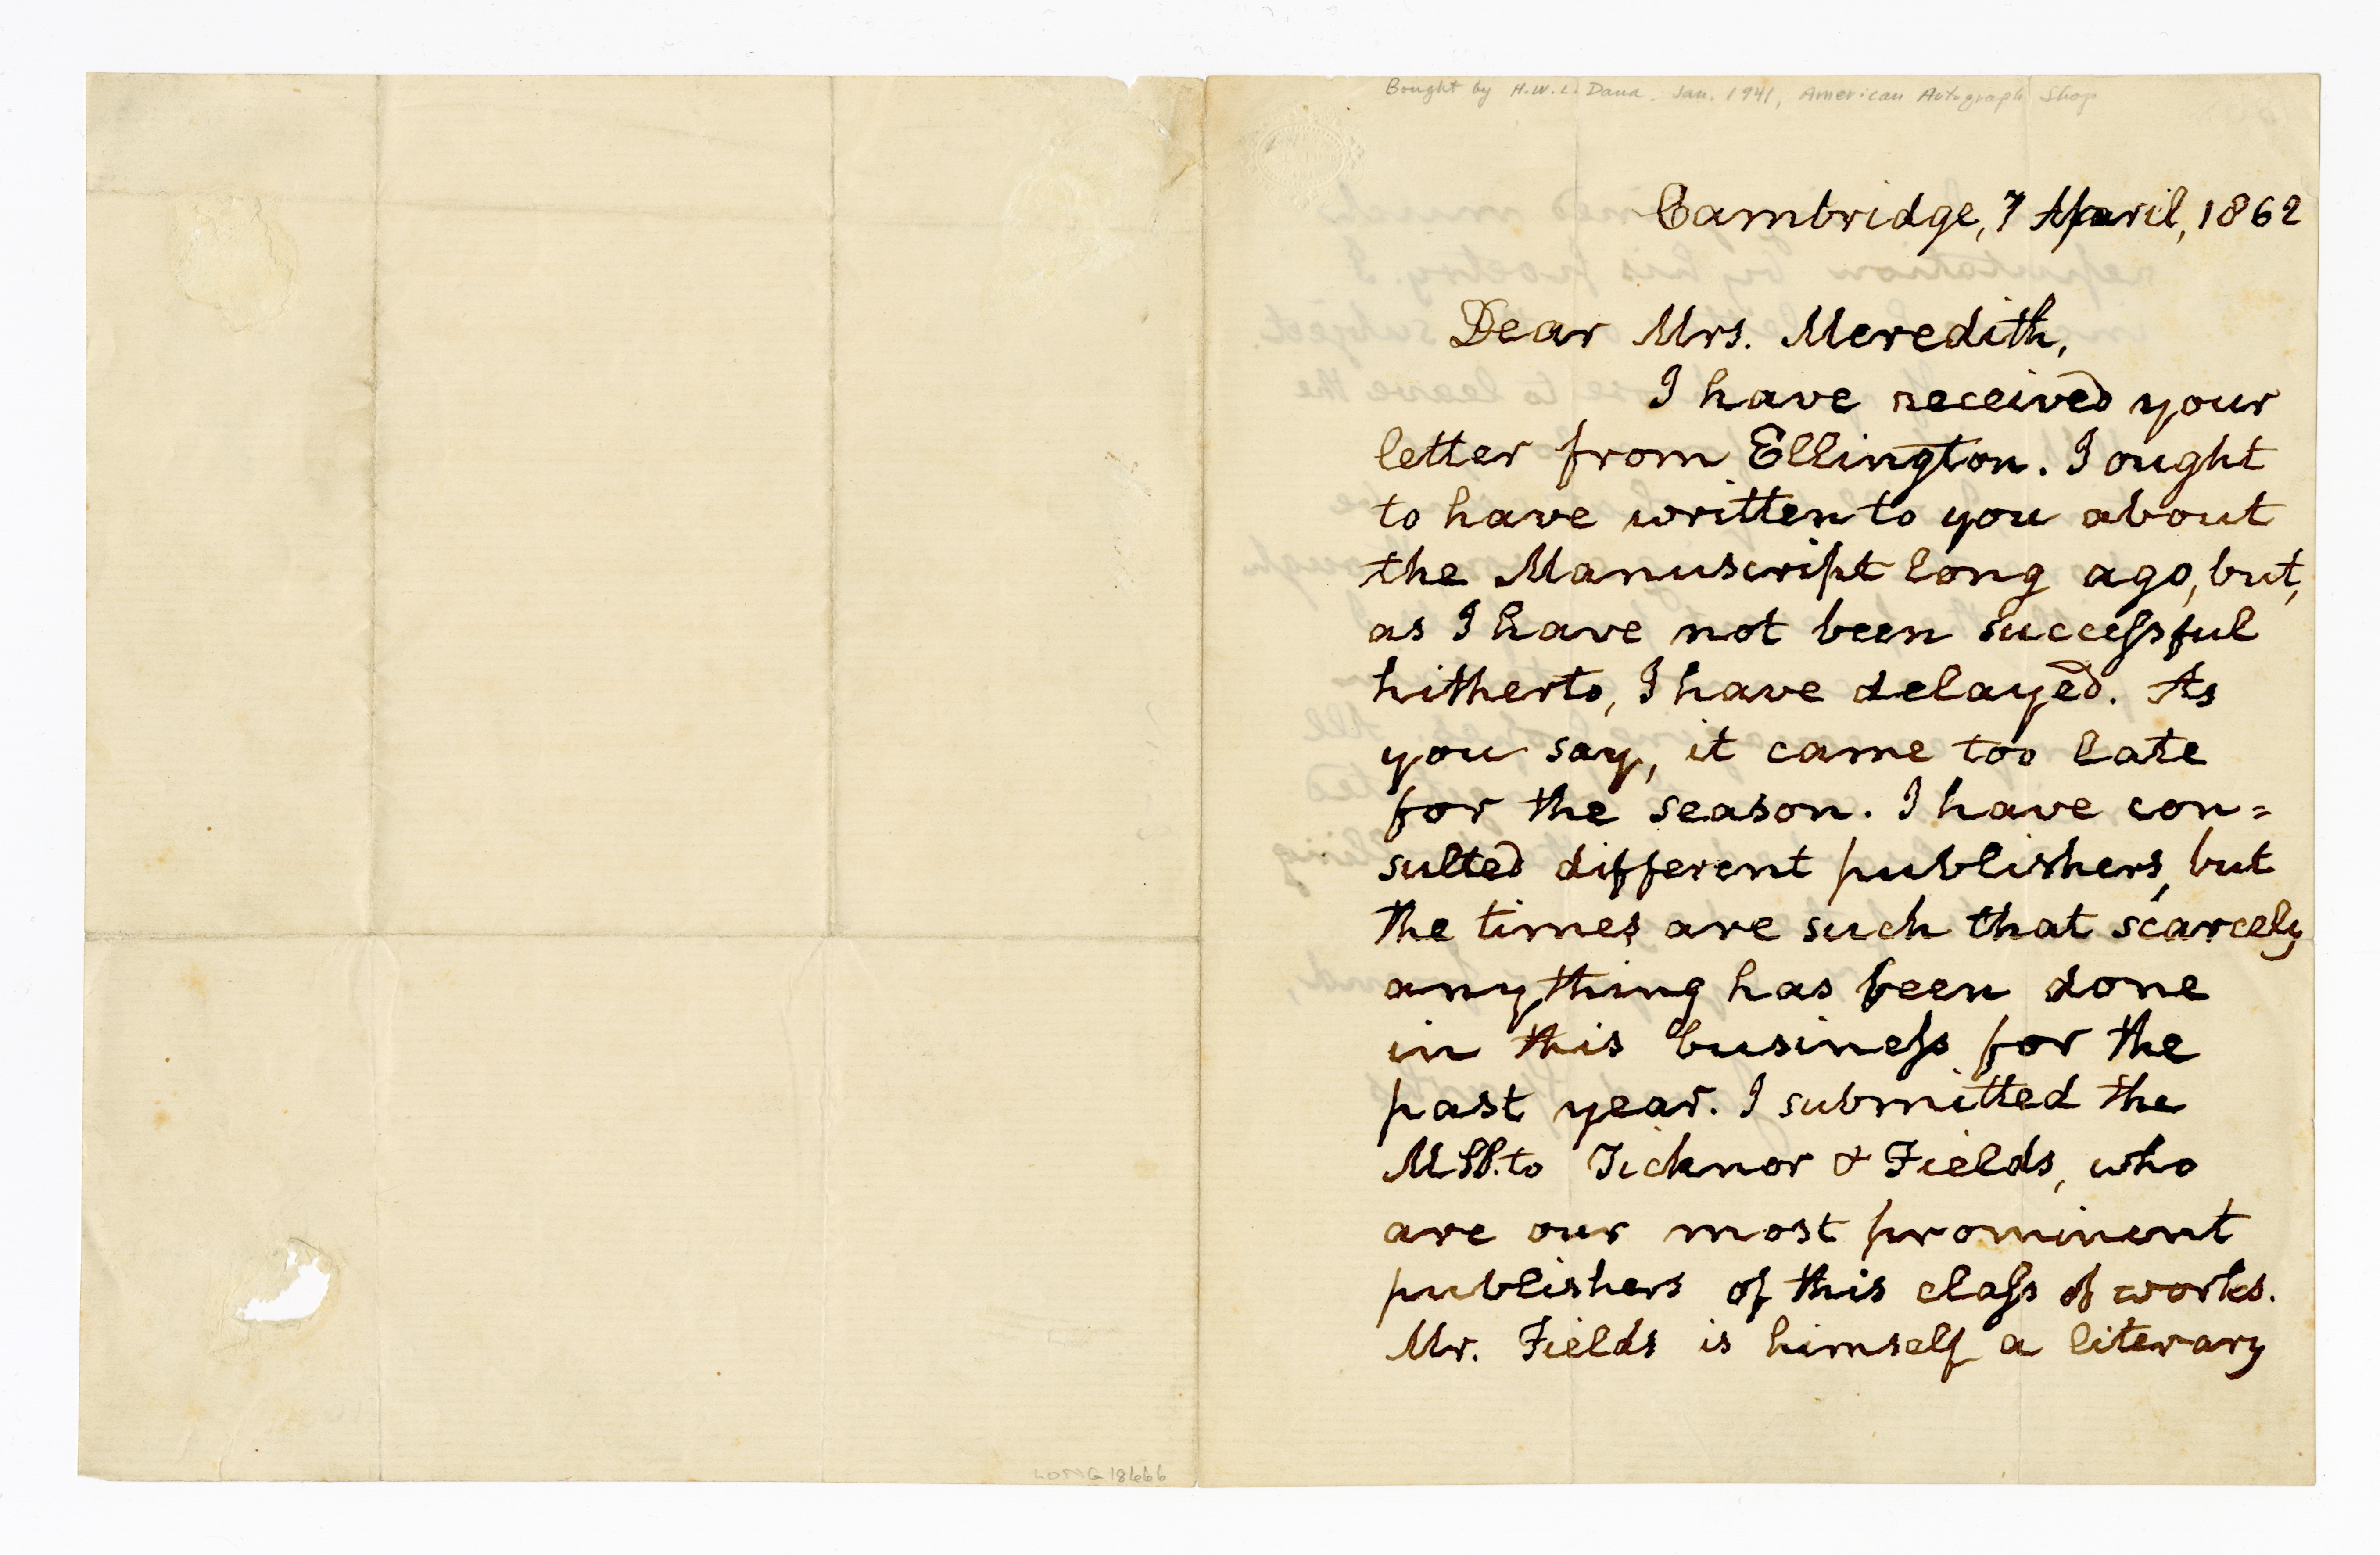 Bought by H.W.L. Dana. Jan. 1941, American Autograph Shop
Cambridge, 7 April, 1862
Dear Mrs. Meredith,
I have received your
letter from Ellington. I ought
to have written to you about
the Manuscript long ago, but,
as I have not been succeſsful
hitherto, I have delayed. As
you say, it came too late
for the season. I have con=
sulted different publishers, but
the times are such that scarcely
anything has been done
in this busineſs for the
past year. I submitted the
MSS. to Ticknor & Fields, who
are our most prominent
publishers of this claſs of works.
Mr. Fields is himself a literary
LONG 18666